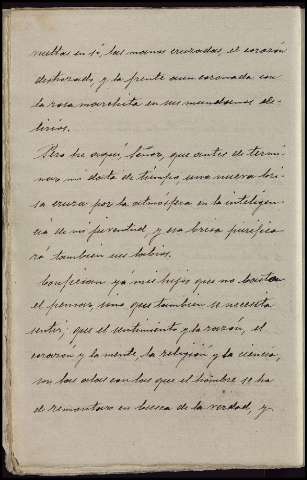 vueltas en sí, las manos cruzadas, el corazón
destrozado, y la frente aun coronada con
la rosa marchita en sus mundanos de-
lirios.
Pero he aquí, Señor, que antes de termi-
nar mi data de tiempo, una nueva bri-
sa cruza por la atmósfera en la inteligen-
cia de mi juventud y esa brisa purifica
rá tambien sus labios.
Confiesan yá mis hijos que no basta
el pensar, sino que tambien se necesita
sentir; que el sentimiento y la razón, el
corazón y la mente, la religión y la ciencia,
son las alas con las que el hombre se ha
de remontar en busca de la verdad, y